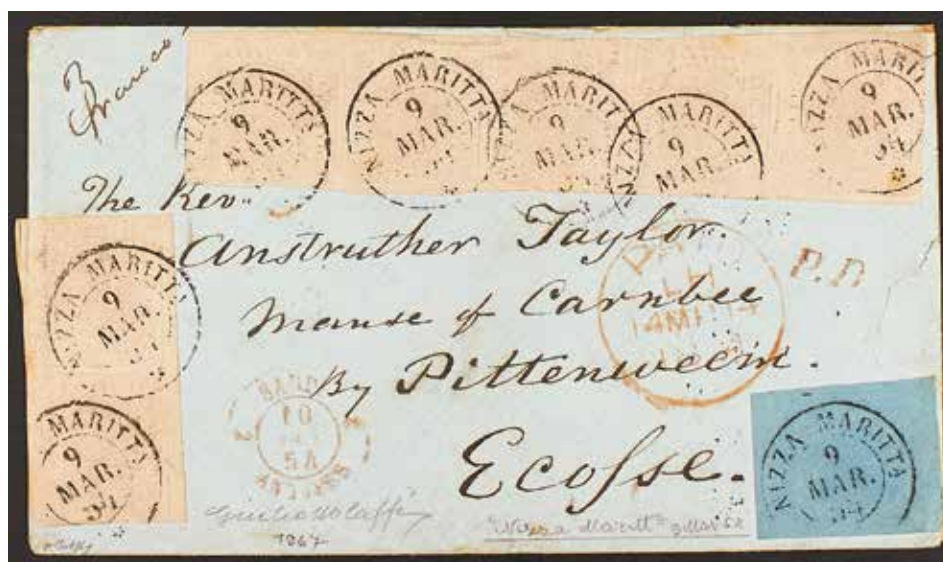 Franco
NIZZA MARITTA
9
MAR.
NIZZA MARITTA
9
MAR.
NIZZA MARITTA
9
MAR.
54
NIZZA MARITTA
9
MAR.
NIZZA MARITTA
9
MAR.
54
The Revd.
Anstruther Taylor.
Manse of Carnbee
By Pittenweem.
Ecosse.
P.D
PAID
14 MR 54
NIZZA MARITTA
9
MAR.
54
NIZZA MARITTA
9
MAR.
54
10
54
ANTIBES
NIZZA MARITTA
9
MAR.
54
"Nizza Maritta" 9 Mar 54